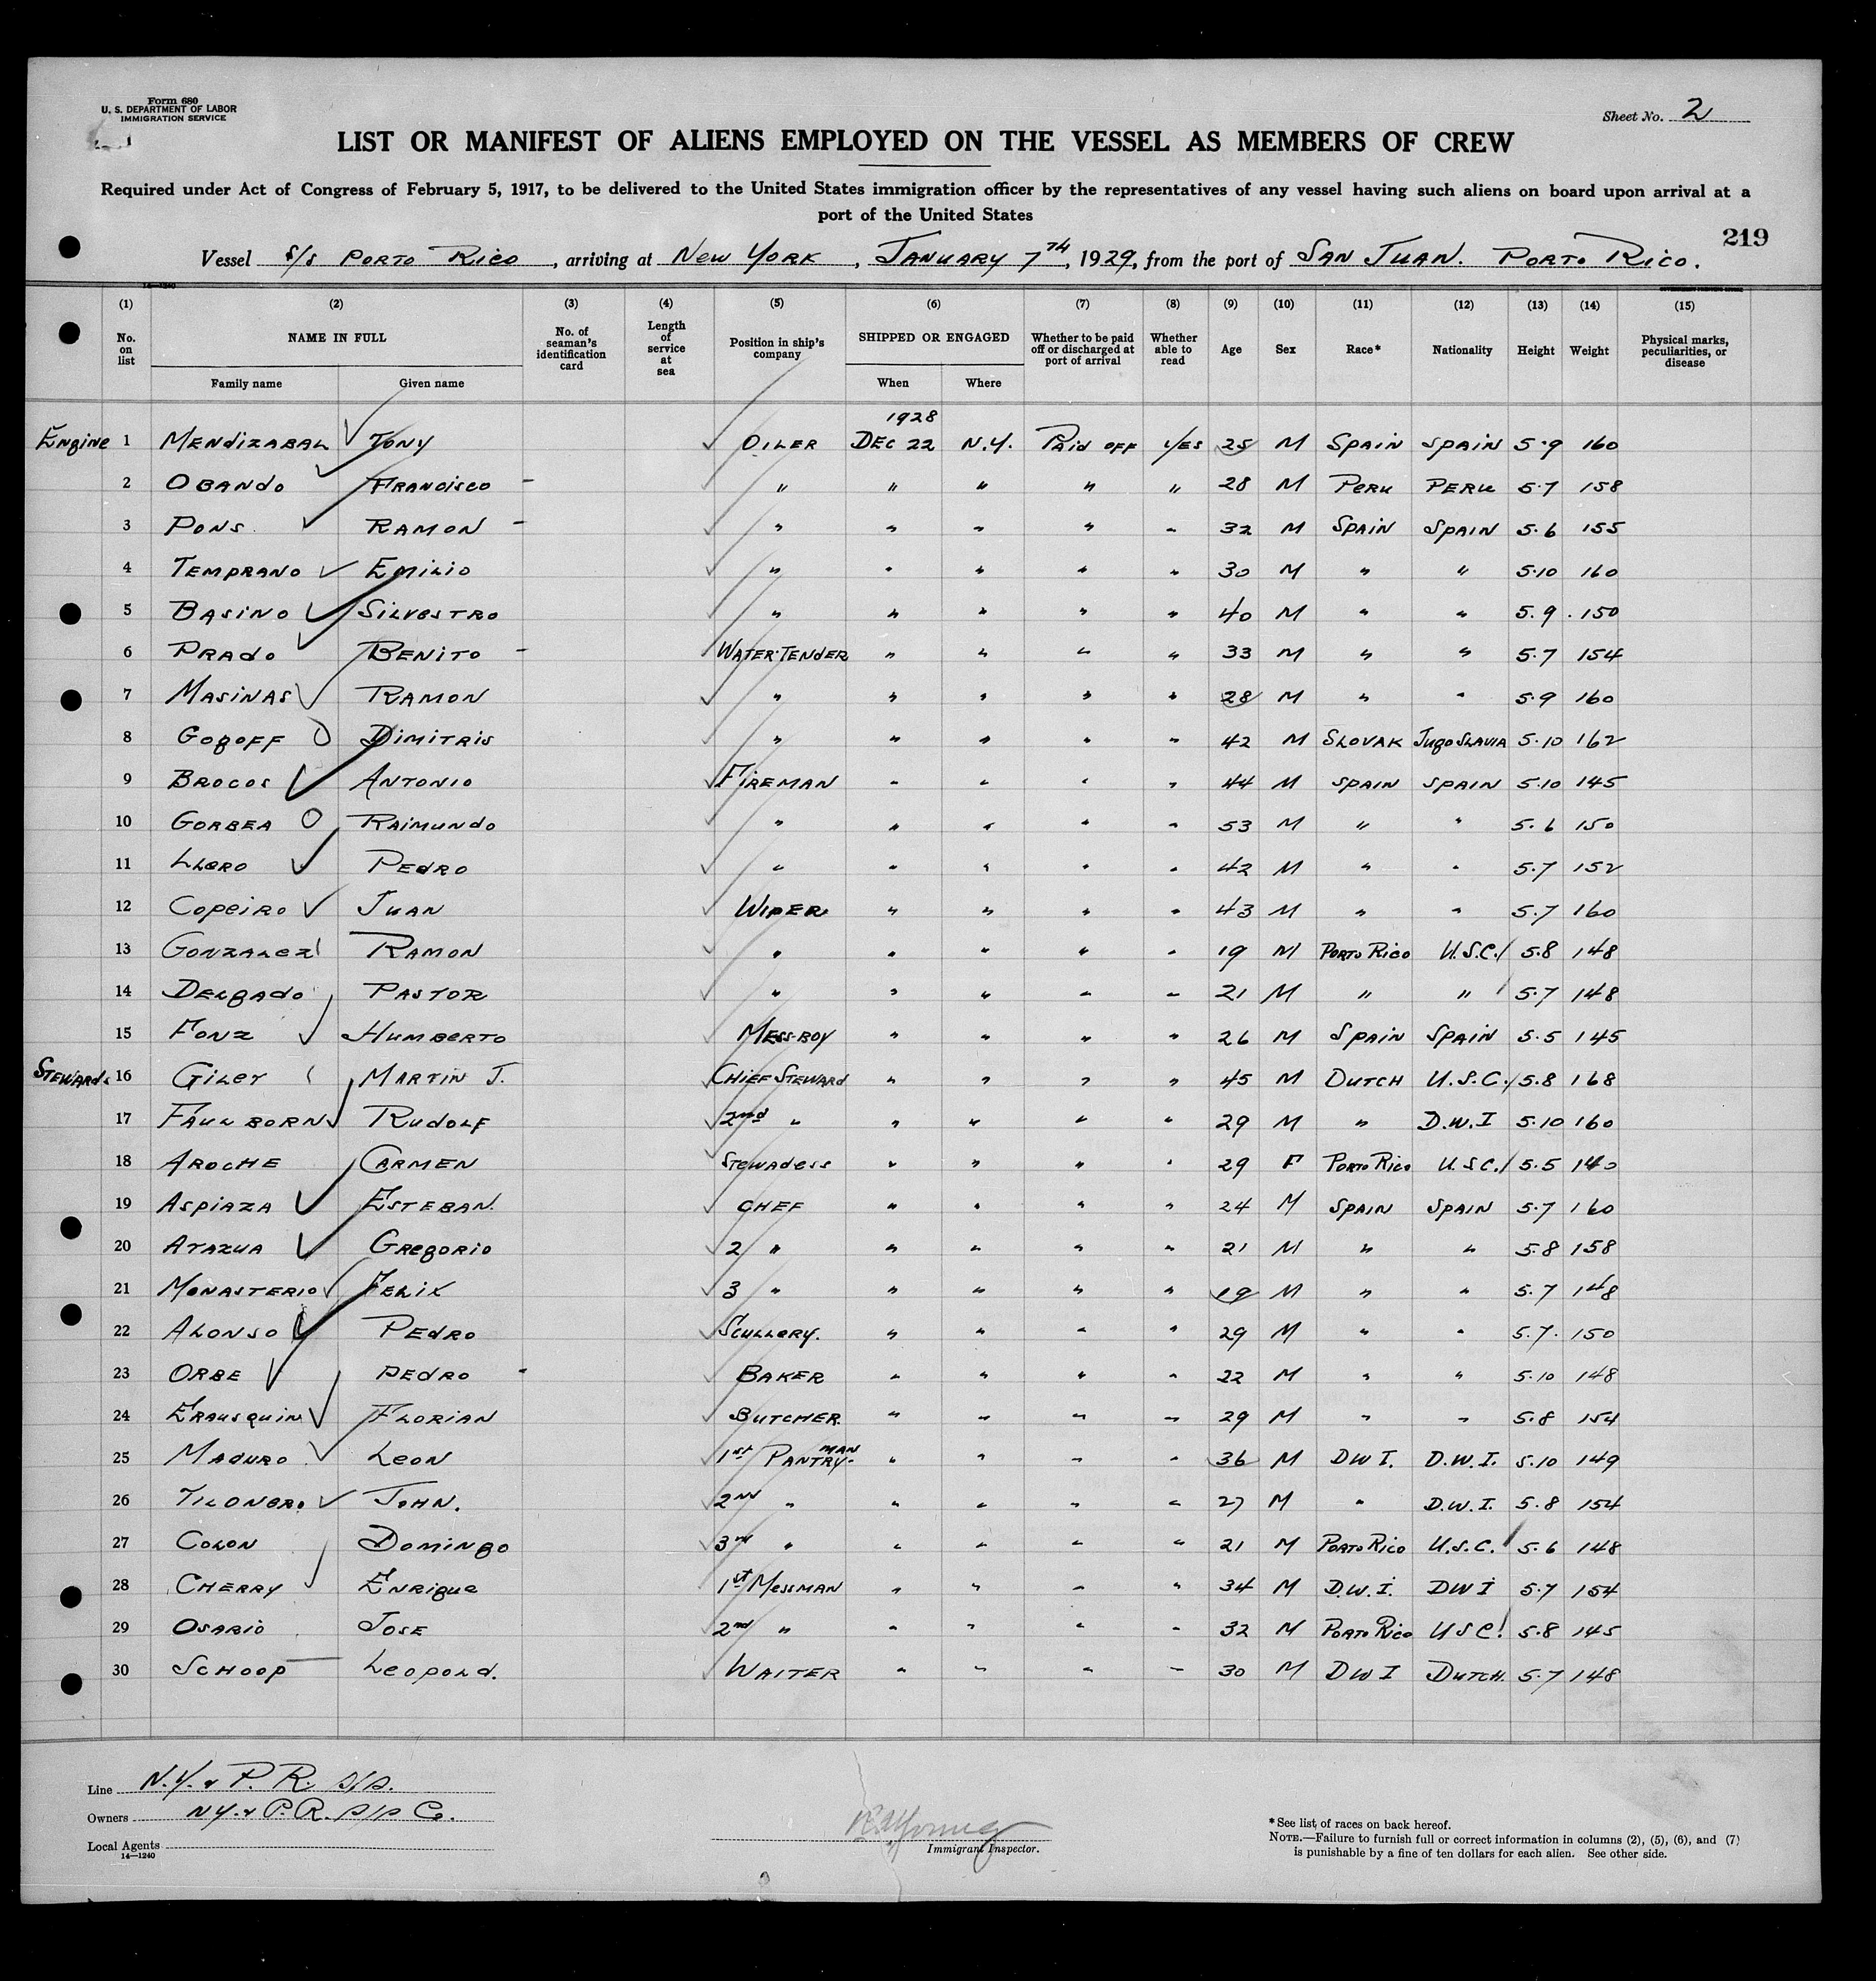 Form 680
U. S. DEPARTMENT OF LABOR
IMMIGRATION SERVICE
Sheet No. 2
LIST OR MANIFEST OF ALIENS EMPLOYED ON THE VESSEL AS MEMBERS OF CREW
Required under Act of Congress of February 5, 1917, to be delivered to the United States immigration officer by the representatives of any vessel having such aliens on board upon arrival at a
port of the United States
219
Vessel S/S PORTO RICO, arriving at NEW YORK, JANUARY 7TH, 1929, from the port of SAN JUAN. PORTO RICO.
14—1240
(1) (2) (3) (4) (5) (6) (7) (8) (9) (10) (11) (12) (13) (14) (15)
No. on list NAME IN FULL No. of seaman's identification card Length of service at sea Position in ship's company SHIPPED OR ENGAGED Whether to be paid off or discharged at port of arrival Whether able to read Age Sex Race* Nationality Height Weight Physical marks, peculiarities, or disease
Family name Given name When Where
1928
Engine 1 MENDIZABAL TONY OILER DEC 22 N.Y. PAID OFF YES 25 M SPAIN SPAIN 5·9 160
2 OBANDO FRANCISCO - " " " " " 28 M PERU PERU 5·7 158
3 PONS. RAMON - " " " " " 32 M SPAIN SPAIN 5·6 155
4 TEMPRANO EMILIO " " " " " 30 M " " 5·10 160
5 BASINO SILVESTRO " " " " " 40 M " " 5.9 150
6 PRADO BENITO - WATER-TENDER " " " " 33 M " " 5·7 154
7 MASINAS RAMON " " " " " 28 M " " 5·9 160
8 GOGOFF DIMITRIS " " " " " 42 M SLOVAK JUGOSLAVIA 5·10 162
9 BROCOS ANTONIO FIREMAN " " " " 44 M SPAIN SPAIN 5·10 145
10 GORBEA RAIMUNDO " " " " " 53 M " " 5·6 150
11 LLERO PEDRO " " " " " 42 M " " 5·7 152
12 COPEIRO JUAN WIPER " " " " 43 M " " 5·7 160
13 GONZALEZ RAMON " " " " " 19 M PORTO RICO U.S.C. 5·8 148
14 DELGADO PASTOR " " " " " 21 M " " 5·7 148
15 FONZ HUMBERTO MESS-BOY " " " " 26 M SPAIN SPAIN 5·5 145
STEWARDS 16 GILEY MARTIN J. CHIEF STEWARD " " " " 45 M DUTCH U.S.C. 5·8 168
17 FAULBORN RUDOLF 2nd " " " " " 29 M " D.W.I 5·10 160
18 AROCHE CARMEN STEWADESS " " " " 29 F PORTO RICO U.S.C. 5·5 140
19 ASPIAZA ESTEBAN. CHEF " " " " 24 M SPAIN SPAIN 5·7 160
20 ATAZUA GREGORIO 2 " " " " " 21 M " " 5·8 158
21 MONASTERIO FELIX 3 " " " " " 19 M " " 5·7 148
22 ALONSO PEDRO SCULLERY. " " " " 29 M " " 5.7. 150
23 ORBE PEDRO - BAKER " " " " 22 M " " 5·10 148
24 ERAUSQUIN FLORIAN BUTCHER " " " " 29 M " " 5·8 154
25 MADURO LEON 1st PANTRY-MAN " " " " 36 M DWI. D.W.I. 5·10 149
26 JOHN. 2ND " " " " " 27 M " D.W.I. 5·8 154
27 COLON DOMINGO 3rd " " " " " 21 M PORTO RICO U.S.C. 5·6 148
28 CHERRY ENRIQUE 1st MESSMAN " " " " 34 M D.W.I. DWI 5·7 154
29 OSARIO JOSE 2nd " " " " " 32 M PORTO RICO USC 5·8 145
30 SCHOOP LEOPOLD. WAITER " " " " 30 M DWI DUTCH. 5·7 148
Line N.Y. & P. R. S/S.
Owners N.Y. & P.R. S/S Co.
Local Agents
14—1240
Immigrant Inspector.
*See list of races on back hereof.
NOTE.—Failure to furnish full or correct information in columns (2), (5), (6), and (7)
is punishable by a fine of ten dollars for each alien. See other side.